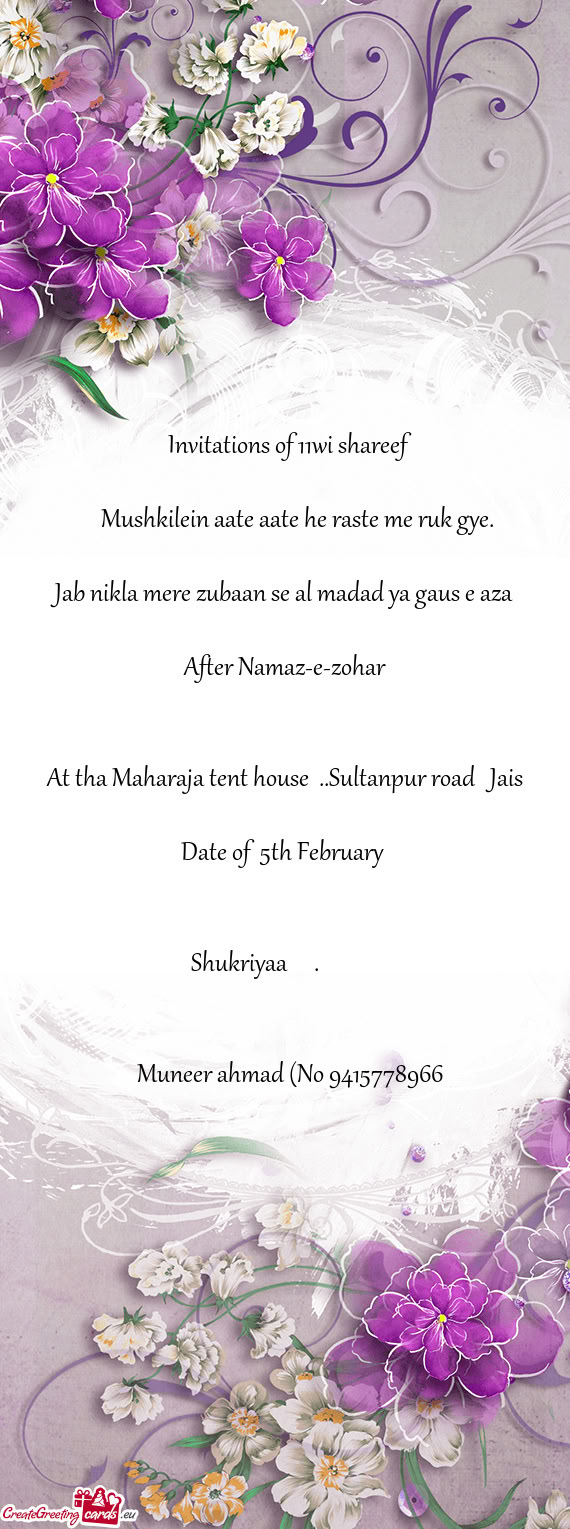 Invitations of 11wi shareef
Mushkilein aate aate he raste me ruk gye.
Jab nikla mere zubaan se al madad ya gaus e aza
After Namaz-e-zohar
At tha Maharaja tent house ..Sultanpur road Jais
Date of 5th February
Shukriyaa .
Muneer ahmad (No 9415778966
CreateGreeting cards .eu